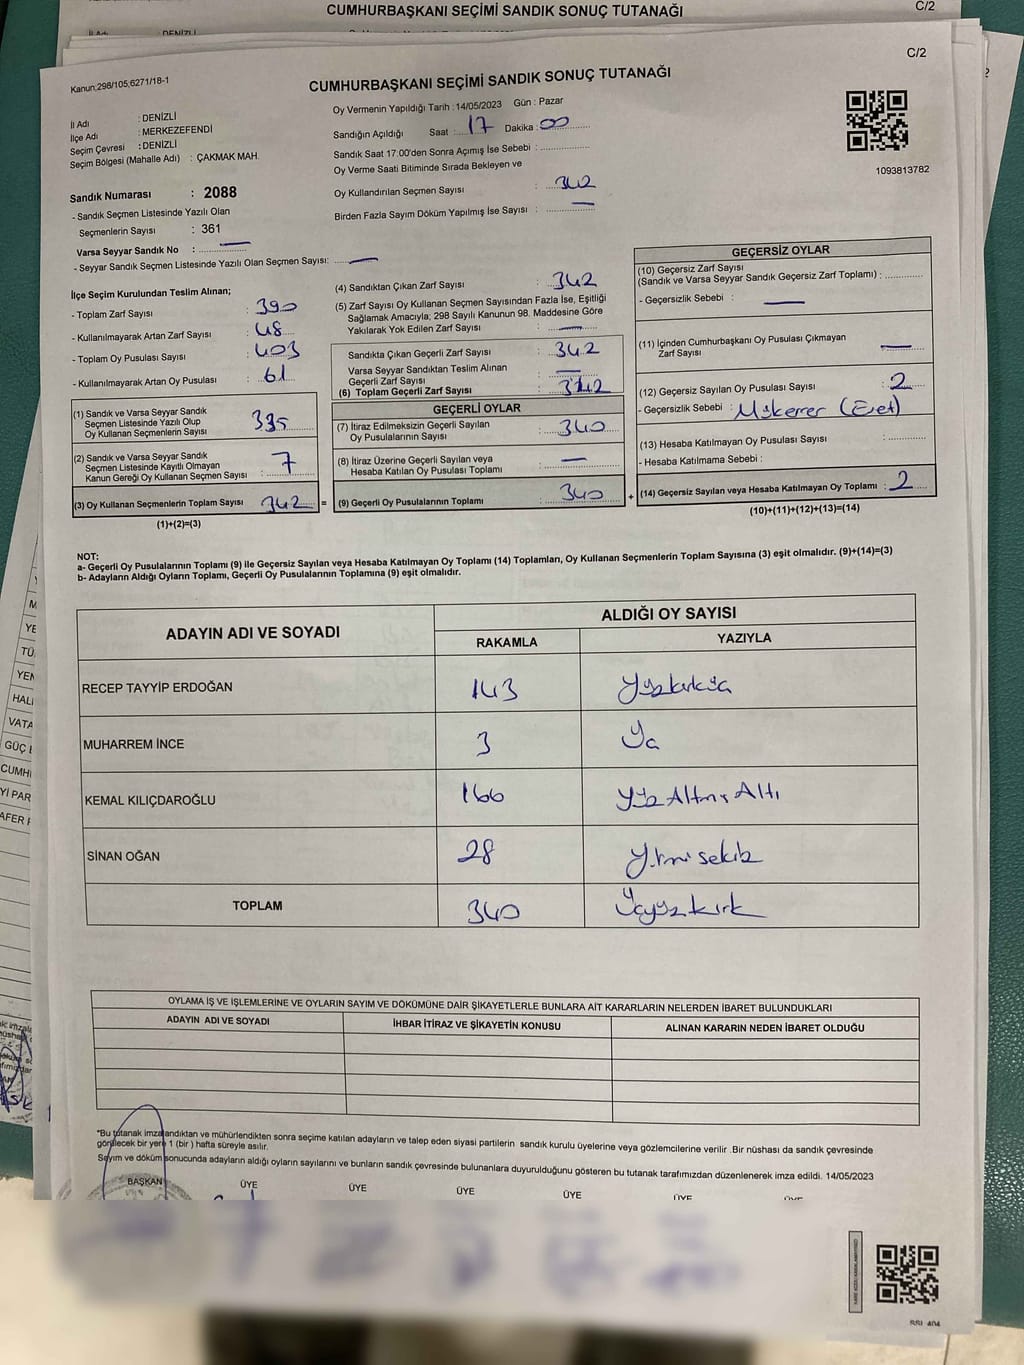 CUMHURBAŞKANI SEÇİMİ SANDIK SONUÇ TUTANAĞI
C/2
İl Adı : DENİZLİ
C/2
Kanun:298/105;6271/18-1
CUMHURBAŞKANI SEÇİMİ SANDIK SONUÇ TUTANAĞI
İl Adı : DENİZLİ
İlçe Adı : MERKEZEFENDİ
Seçim Çevresi : DENİZLİ
Seçim Bölgesi (Mahalle Adı) : ÇAKMAK MAH.
Oy Vermenin Yapıldığı Tarih : 14/05/2023 Gün : Pazar
Sandığın Açıldığı Saat : 17 Dakika : 00
Sandık Saat 17.00'den Sonra Açımış İse Sebebi :
Oy Verme Saati Bitiminde Sırada Bekleyen ve
Oy Kullandırılan Seçmen Sayısı : 342
Birden Fazla Sayım Döküm Yapılmış İse Sayısı : —
1093813782
Sandık Numarası : 2088
- Sandık Seçmen Listesinde Yazılı Olan
Seçmenlerin Sayısı : 361
Varsa Seyyar Sandık No : —
- Seyyar Sandık Seçmen Listesinde Yazılı Olan Seçmen Sayısı: —
İlçe Seçim Kurulundan Teslim Alınan;
- Toplam Zarf Sayısı : 390
- Kullanılmayarak Artan Zarf Sayısı : 48
- Toplam Oy Pusulası Sayısı : 403
- Kullanılmayarak Artan Oy Pusulası : 61
(1) Sandık ve Varsa Seyyar Sandık
Seçmen Listesinde Yazılı Olup
Oy Kullanan Seçmenlerin Sayısı 335
(2) Sandık ve Varsa Seyyar Sandık
Seçmen Listesinde Kayıtlı Olmayan
Kanun Gereği Oy Kullanan Seçmen Sayısı 7
(3) Oy Kullanan Seçmenlerin Toplam Sayısı 342 =
(1)+(2)=(3)
(4) Sandıktan Çıkan Zarf Sayısı : 342
(5) Zarf Sayısı Oy Kullanan Seçmen Sayısından Fazla İse, Eşitliği
Sağlamak Amacıyla; 298 Sayılı Kanunun 98. Maddesine Göre
Yakılarak Yok Edilen Zarf Sayısı : —
Sandıkta Çıkan Geçerli Zarf Sayısı : 342
Varsa Seyyar Sandıktan Teslim Alınan
Geçerli Zarf Sayısı : —
(6) Toplam Geçerli Zarf Sayısı : 342
GEÇERLİ OYLAR
(7) İtiraz Edilmeksizin Geçerli Sayılan
Oy Pusulalarının Sayısı : 340
(8) İtiraz Üzerine Geçerli Sayılan veya
Hesaba Katılan Oy Pusulası Toplamı : —
(9) Geçerli Oy Pusulalarının Toplamı : 340 +
GEÇERSİZ OYLAR
(10) Geçersiz Zarf Sayısı
(Sandık ve Varsa Seyyar Sandık Geçersiz Zarf Toplamı) :
- Geçersizlik Sebebi : —
(11) İçinden Cumhurbaşkanı Oy Pusulası Çıkmayan
Zarf Sayısı —
(12) Geçersiz Sayılan Oy Pusulası Sayısı : 2
- Geçersizlik Sebebi : Mükerrer (Evet)
(13) Hesaba Katılmayan Oy Pusulası Sayısı :
- Hesaba Katılmama Sebebi :
(14) Geçersiz Sayılan veya Hesaba Katılmayan Oy Toplamı : 2
(10)+(11)+(12)+(13)=(14)
NOT:
a- Geçerli Oy Pusulalarının Toplamı (9) ile Geçersiz Sayılan veya Hesaba Katılmayan Oy Toplamı (14) Toplamları, Oy Kullanan Seçmenlerin Toplam Sayısına (3) eşit olmalıdır. (9)+(14)=(3)
b- Adayların Aldığı Oyların Toplamı, Geçerli Oy Pusulalarının Toplamına (9) eşit olmalıdır.
ADAYIN ADI VE SOYADI
ALDIĞI OY SAYISI
RAKAMLA YAZIYLA
RECEP TAYYİP ERDOĞAN 143 Yüzkırküç
MUHARREM İNCE 3 Üç
KEMAL KILIÇDAROĞLU 166 Yüz Altmış Altı
SİNAN OĞAN 28 Yirmi sekiz
TOPLAM 340 Üçyüzkırk
OYLAMA İŞ VE İŞLEMLERİNE VE OYLARIN SAYIM VE DÖKÜMÜNE DAİR ŞİKAYETLERLE BUNLARA AİT KARARLARIN NELERDEN İBARET BULUNDUKLARI
ADAYIN ADI VE SOYADI İHBAR İTİRAZ VE ŞİKAYETİN KONUSU ALINAN KARARIN NEDEN İBARET OLDUĞU
*Bu tutanak imzalandıktan ve mühürlendikten sonra seçime katılan adayların ve talep eden siyasi partilerin sandık kurulu üyelerine veya gözlemcilerine verilir .Bir nüshası da sandık çevresinde
görülecek bir yere 1 (bir ) hafta süreyle asılır.
Sayım ve döküm sonucunda adayların aldığı oyların sayılarını ve bunların sandık çevresinde bulunanlara duyurulduğunu gösteren bu tutanak tarafımızdan düzenlenerek imza edildi. 14/05/2023
BAŞKAN ÜYE ÜYE ÜYE ÜYE ÜYE